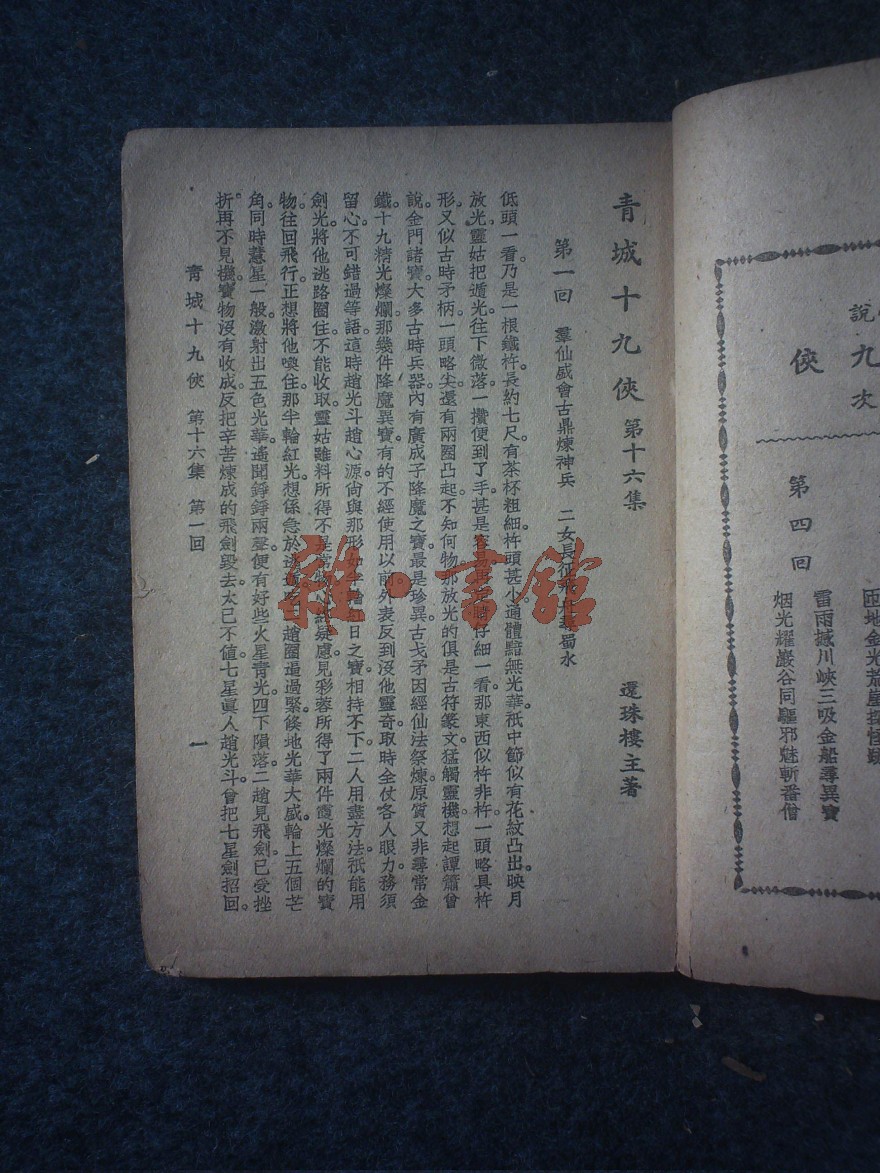 說
九
次
俠
第四回
匝地金光荒崖
雷雨撼川峽三吸金船尋異寶
烟光耀巖谷同驅邪魅斬番僧
青城十九俠 第十六集
還珠樓主著
第一回 羣仙盛會古鼎煉神兵 二女長征飛舟
蜀水
低頭一看乃是一根鐵杵長約七尺有茶杯粗細杵頭甚小通體黯無光華祇中節似有花紋凸出映月
放光靈姑把遁光往下微落一攢便到了手甚是
仔細一看那東西似杵非杵一頭略具杵
形又似古時矛柄一頭略尖還有兩圈凸起不知何物那放光的俱是古符篆文猛觸靈機想起譚簫曾
說金門諸寶大多古時兵器內有廣成子降魔之寶最是珍異古戈矛因經仙法祭煉原質又非尋常金
鐵十九精光燦爛那幾件降魔異寶有的不經使用以前外表反到沒他靈奇取時全仗各人眼力務須
留心不可錯過等語這時趙光斗趙心源尙與那形如半輪紅日之寶相持不下二人用盡方法祇能用
劍光將他逃路圈住不能收取靈姑雖料所得不是常物心終疑慮見彩蓉所得了兩件霞光燦爛的寶
物往回飛行正想將他喚住那半輪紅光想係急於逃遁吃二趙圈逼過緊倏地光華大盛輪上五個芒
角同時慧星一般激射出五色光華遙聞錚錚兩聲便有好些火星青光四下隕落二趙見飛劍已受挫
折再不見機寶物沒有收成反把辛苦煉成的飛劍毀去太已不值七星眞人趙光斗曾把七星劍招回
青城十九俠 第十六集 第一回
一
雜·書館